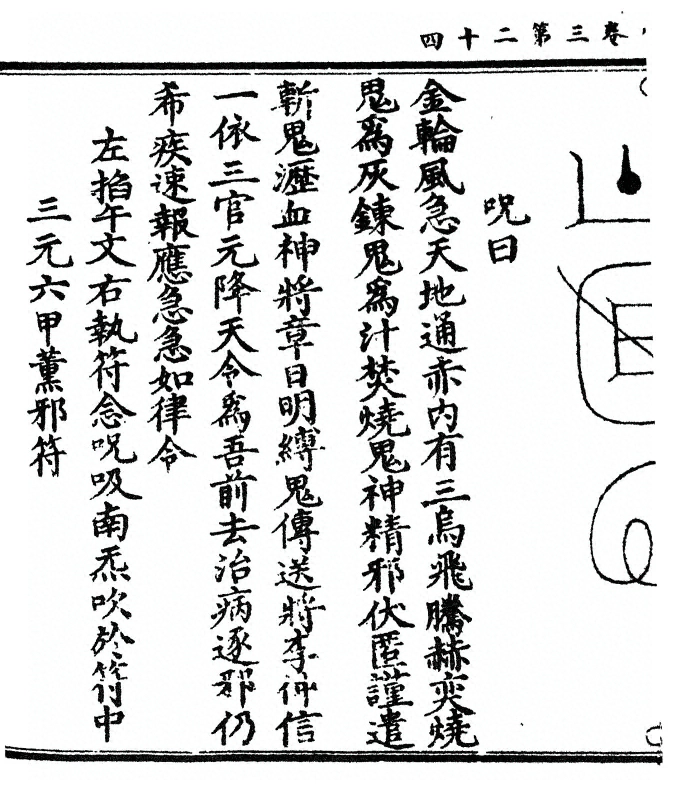 卷三第二十四
呪曰
金輪風急天地通赤內有三烏飛騰赫奕燒
鬼爲灰鍊鬼爲汁焚燒鬼神精邪伏匿謹遣
斬鬼瀝血神將章日明縛鬼傳送將李仲信
一依三官元降天令爲吾前去治病逐邪仍
希疾速報應急急如律令
左掐午文右執符念呪吸南炁吹於符中
三元六甲薰邪符